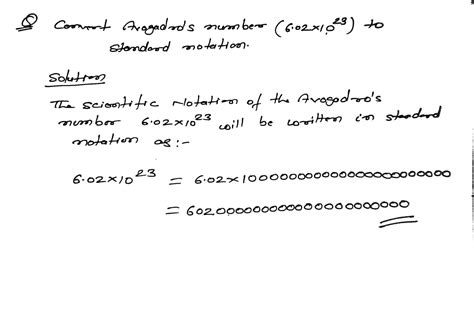 Q Convert Avogadro's number (6.02×10²³) to
standard notation.
Solution
The Scientific Notation of the Avogadro's
number 6.02×10²³ will be written in standard
notation as :-
6.02×10²³ = 6.02×100000000000000000000000
= 602000000000000000000000